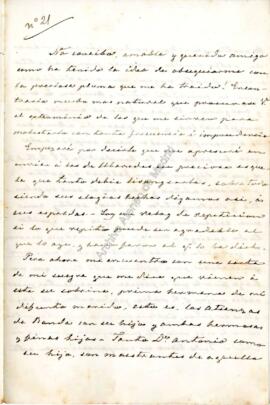 nº 21
No conciba, amable y querida amiga
como ha tenido la idea de obsequiarme con
la preciosa pluma que me ha traido! Encon-
traria mucho mas natural que procurase V.
el exterminio de las que me sirven para
molestarla con tanta frecuencia é impertinencia
Empezaré por decirle que me apresuré
envié a los de
que tanto debia
siendo sus elogios hechos digamos asi, á
sus espaldas. Soy un reloj de repeticion
si lo que repito puede ser agradable al
que lo oye, y hace favor al q. lo ha dicho.
Pero ahora me encuentro con una carta
de mi suegra que me dice que vienen á
esta su sobrino, primo hermano de mi
difunto marido, esto es, los
de Ronda con su hijo y ambas hermosas
y finas hijas. Tanto Dn. Antonio como
su hijo, son maestrantes de aquella